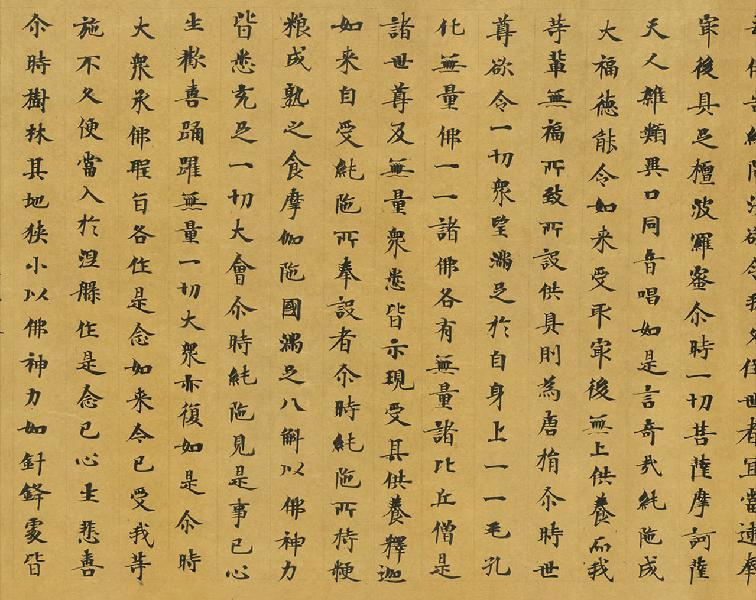 告純陀汝欲令我久住世者宜當速奉
㝡後具足檀波羅蜜尒時一切菩薩摩訶薩
天人雜類異口同音唱如是言奇哉純陀成
大福德能令如來受取㝡後無上供養而我
等輩無福所致所設供具則為唐捐尒時世
尊欲令一切眾望滿足於自身上一一毛孔
化無量佛一一諸佛各有無量諸比丘僧是
諸世尊及無量眾悉皆示現受其供養釋迦
如來自受純陀所奉設者尒時純陀所持粳
粮成熟之食摩伽陀國滿足八斛以佛神力
皆悉充足一切大會尒時純陀見是事已心
生歡喜踊躍無量一切大眾亦復如是尒時
大眾承佛聖旨各作是念如來今已受我等
施不久便當入於涅槃作是念已心生悲喜
尒時樹林其地狹小以佛神力如針鋒處皆